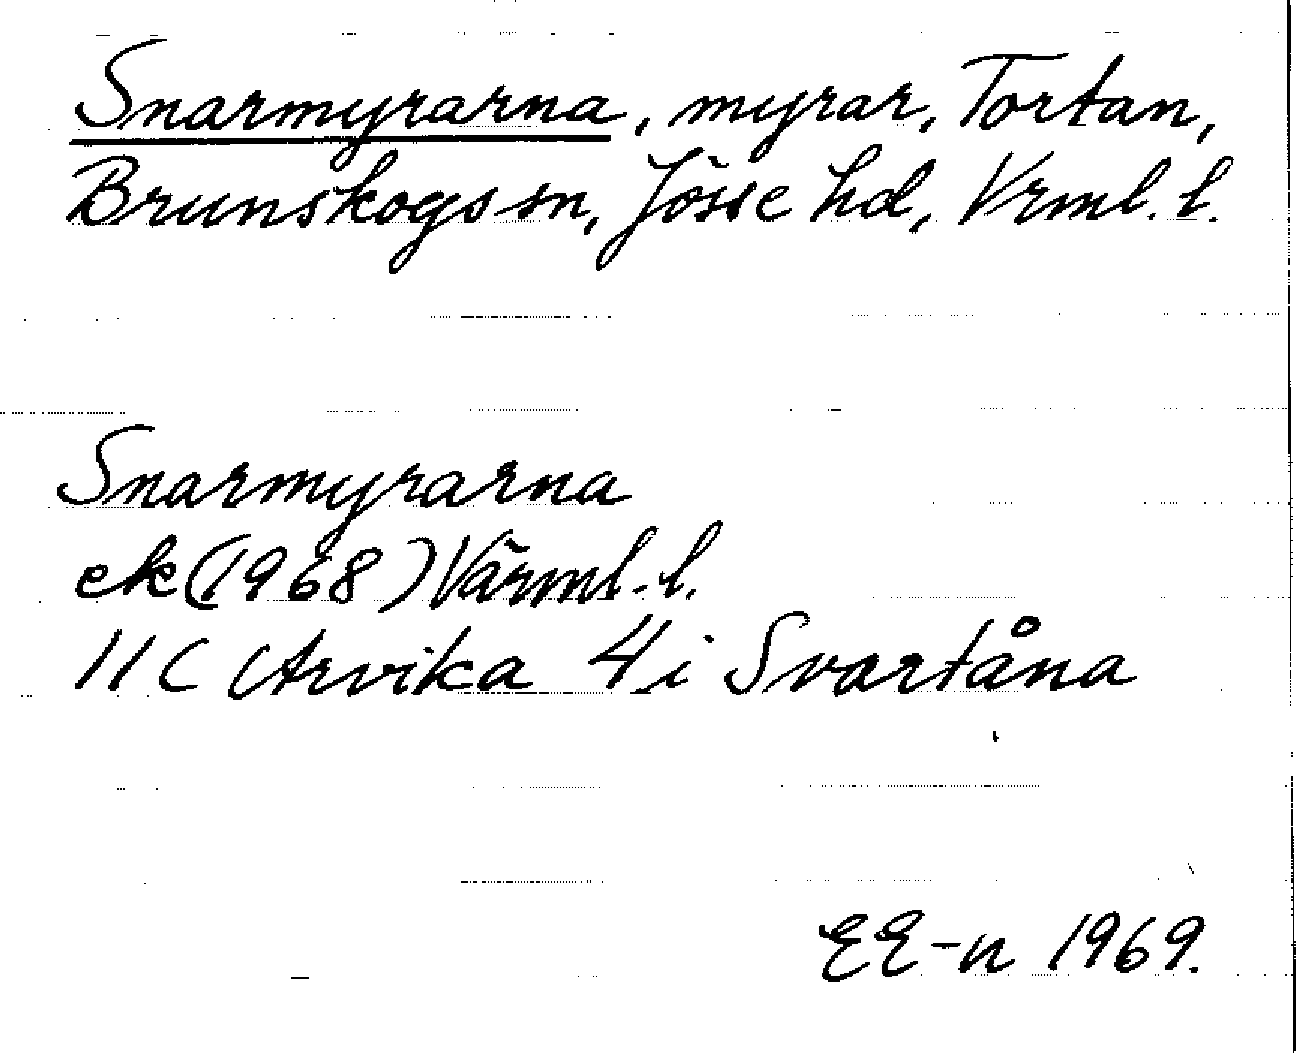 Snarmyrarna, myrar, Tortan,
Brunskogs sn, Jösse hd, Vrml. l.
Snarmyrarna
ek (1968) Värml. l.
11 C Arvika 4 i Svartåna
EE-n 1969.